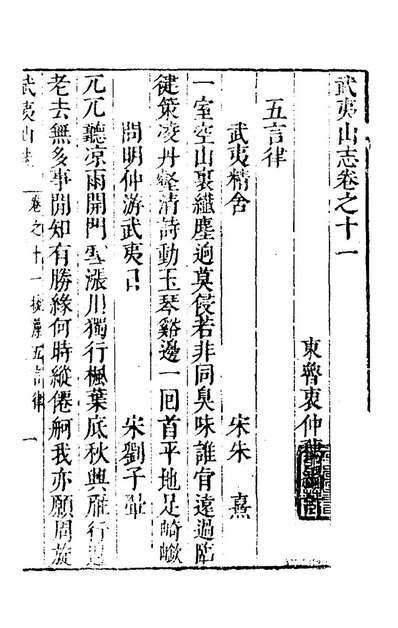 武夷山志卷之十一
東魯衷仲
五言律
武夷精舍　宋朱熹
一室空山裏纖塵迥莫侵若非同臭味誰肎遠過臨
徤策凌丹壑清詩動玉琴谿邊一囘首平地足崎嶔
問明仲游武夷　宋劉子翬
兀兀聽凉雨開門雪漲川獨行楓葉底秋興雁行邊
老去無多事閒知有勝緣何時縱僊舸我亦願周旋
武夷山志　卷之十一　五言律　一